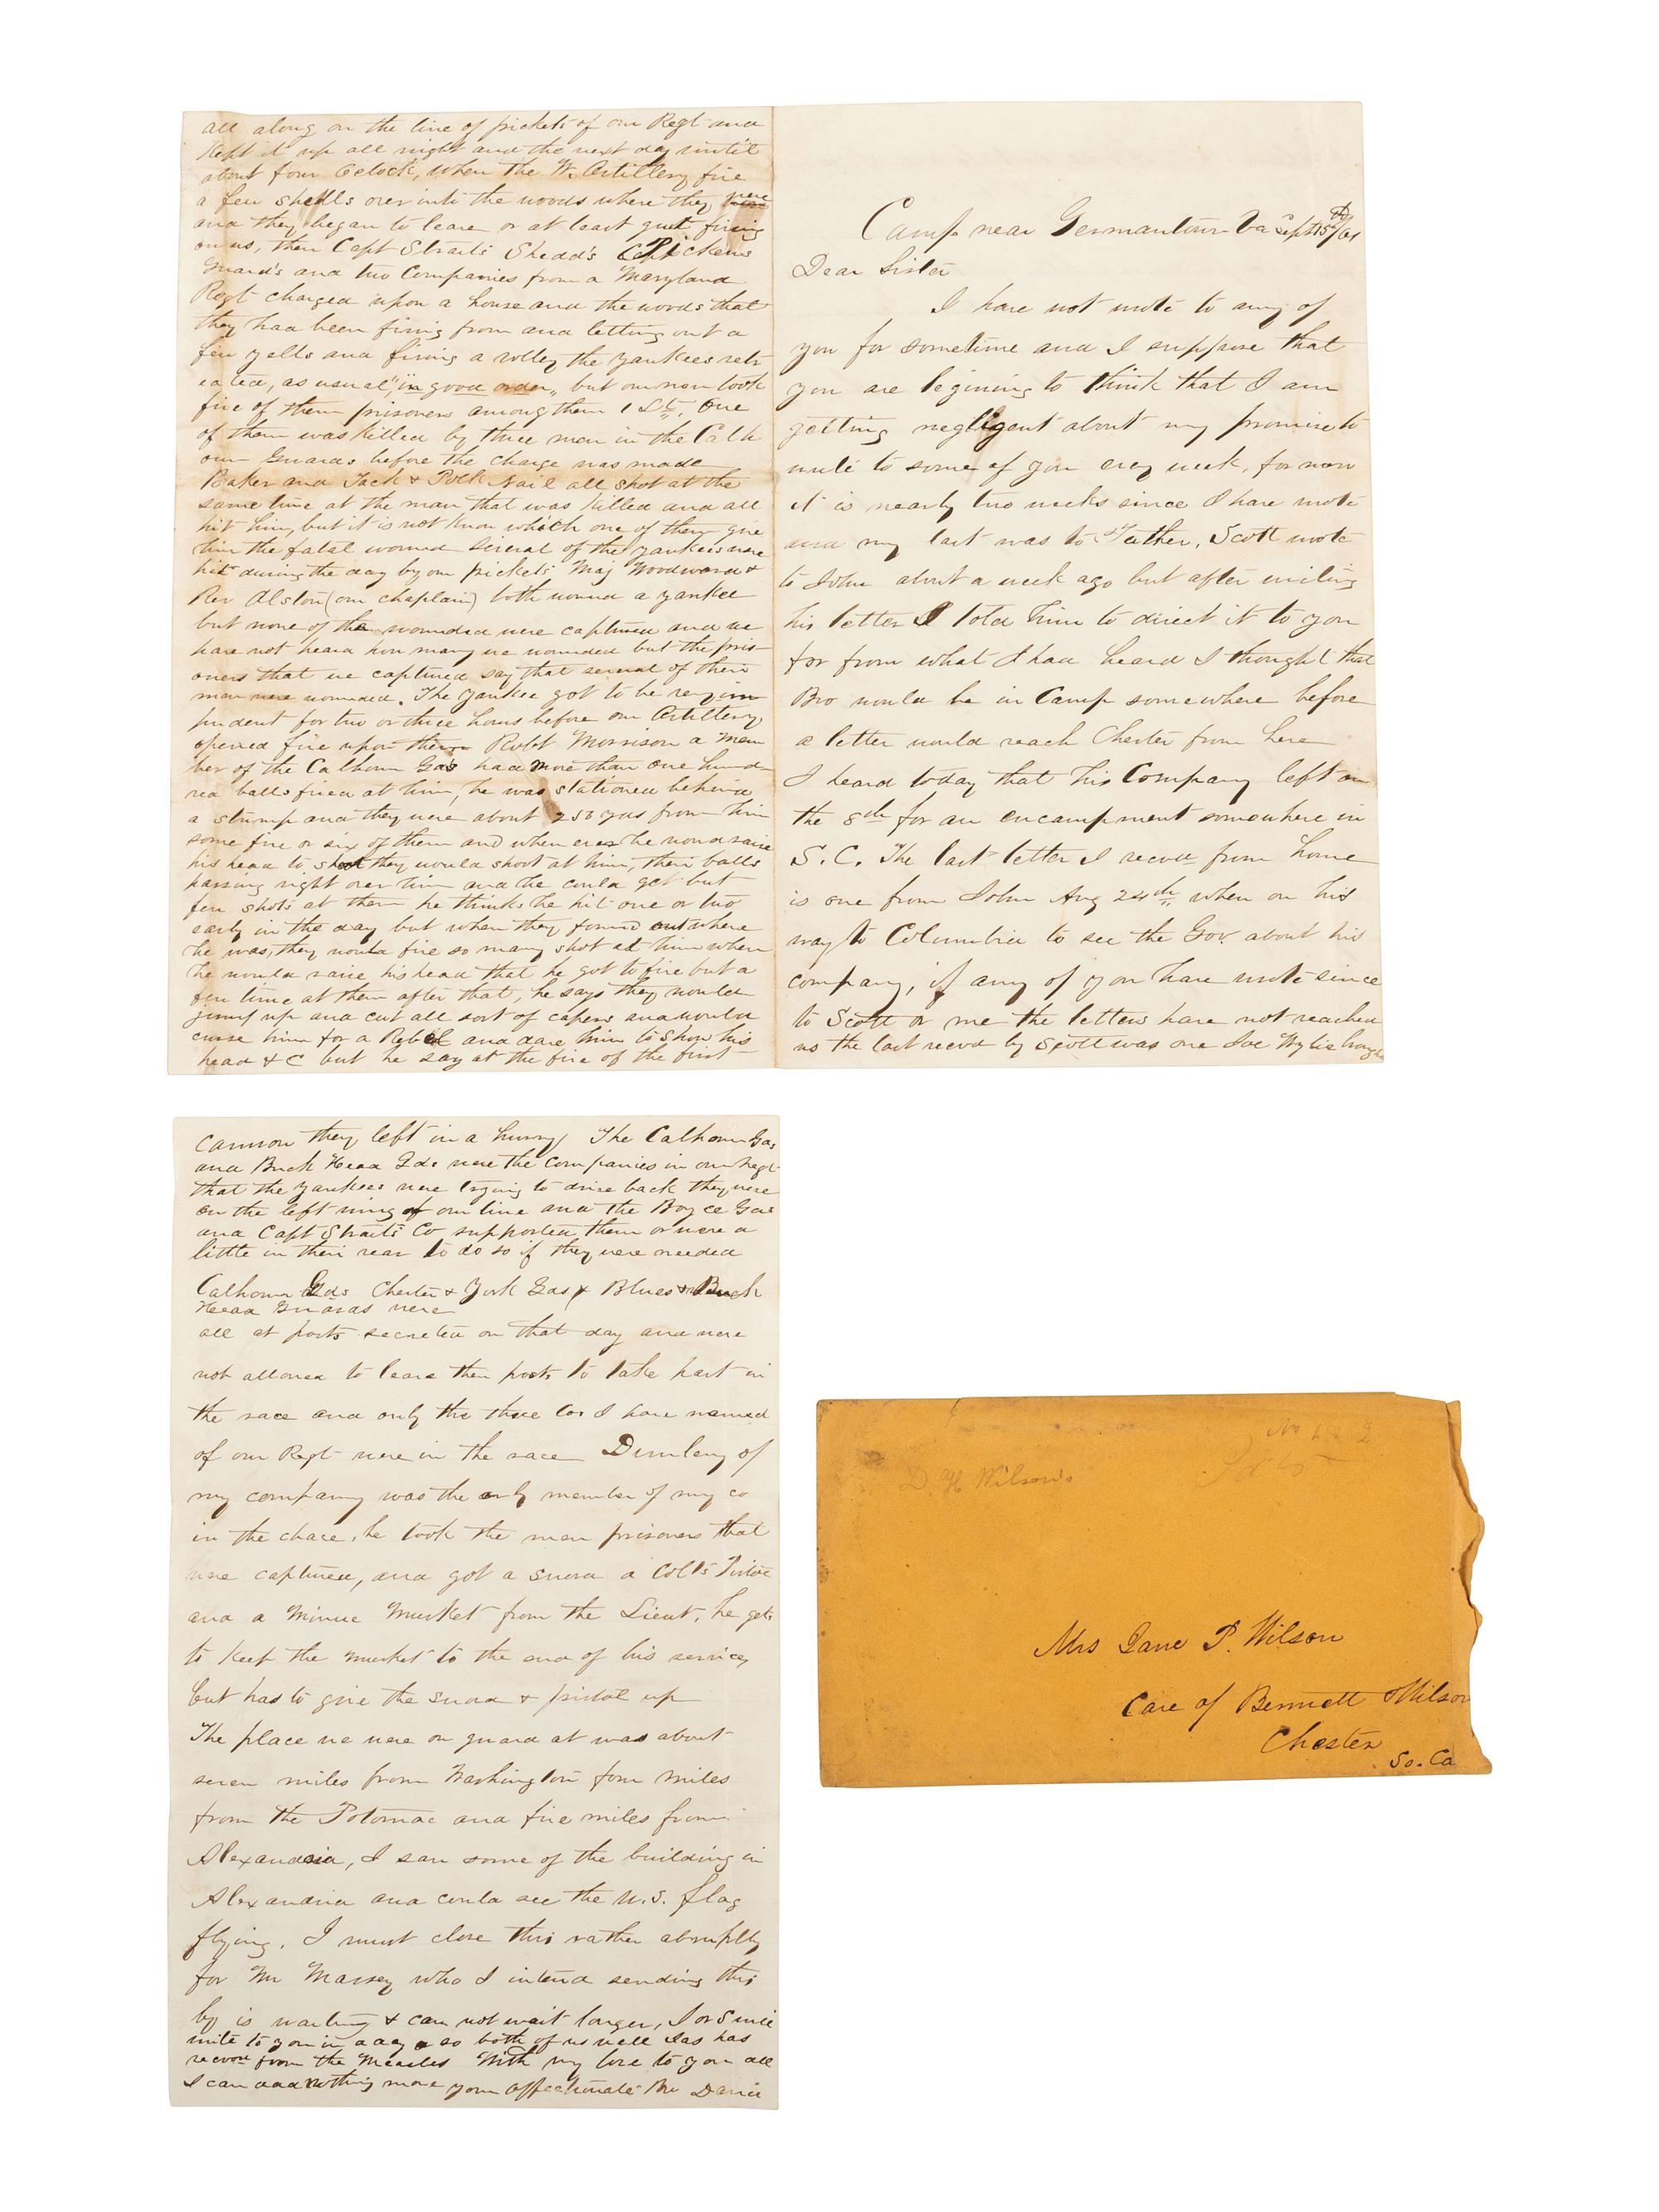 Camp near Germantown Va Sept 15th/61
Dear Sister
I have not wrote to any of
you for sometime and I suppose that
you are begining to think that I am
getting negligent about my promise to
write to some of you evry week, for now
it is nearly two weeks since I have wrote
and my last was to Father, Scott wrote
to John about a week ago but after writing
his letter I told him to direct it to you
for from what I had heard I thought that
Bro would be in Camp somewhere before
a letter would reach Chester from here
I heard today that his Company left on
the 8th for an encampment somewhere in
S. C. The last letter I recvd from home
is one from John Aug 24th when on his
way to Columbia to see the Gov. about his
company, if any of you have wrote since
to Scott or me the letters have not reached
us the last recvd by Scott was one Joe Wylie
all along on the line of pickets of our Regt and
Kept it up all night and the next day until
about four Oclock, when the W. Artillery fire
a few shells over into the woods where they were
and they began to leave or at least quit firing
on us, then Capt Straits Shedd's Pickens
Guard's and two Companies from a Maryland
Regt charged upon a house and the woods that
they had been firing from and letting out a
few yells and firing a volley the yankees retr
eated, as usual "in good order", but our men took
five of them prisoners among them 1 Lt. One
of them was killed by three men in the Calh
oun Guards before the charge was made
Baker and Jack & Polk Nail all shot at the
same time at the man that was killed and all
hit him, but it is not know which one of them give
him the fatal wound several of the yankees were
hit during the day by our pickets Maj Woodward &
Rev Alston (our chaplain) both wound a yankee
but none of the wounded were captured and we
have not heard how many we wounded but the pris-
oners that we captured say that several of their
men were wounded. The yankee got to be very im
pudent for two or three hours before our Artillery
opened fire upon them Robt Morrison a mem
ber of the Calhoun Gds had more than one hund-
red balls fired at him, he was stationed behind
a stump and they were about 250 yds from him
some five or six of them and when ever he would raise
his head to shoot they would shoot at him, their balls
passing right over him and he could get but
few shots at them he thinks he hit one or two
early in the day but when they found out where
he was, they would fire so many shot at him when
he would raise his head that he got to fire but a
few time at them after that, he says they would
jump up and cut all sort of capers and would
curse him for a Rebel and dare him to show his
head & C but he say at the fire of the first
cannon they left in a hurry The Calhoun Gds
and Buck Head Gds were the companies in our Regt
that the yankees were trying to drive back they were
on the left wing of our line and the Boyce Gds
and Capt Straits Co supported them or were a
little in their rear to do so if they were needed
Calhoun Gds Chester & York Gds & Blues & Buck
Head Guards were
all at posts secreted on that day and were
not allowed to leave then posts to take part in
the race and only the three Cos I have named
of our Regt were in the race Dunlevy of
my company was the only member of my co
in the chace, he took the men prisoners that
were captured, and got a sword a Colts Pistol
and a Minue Musket from the Lieut, he gets
to keep the musket to the end of his service,
but has to give the sword & pistol up
The place we were on guard at was about
seven miles from Washington four miles
from the Potomac and five miles from
Alexandria, I saw some of the building in
Alexandria and could see the U.S. flag
flying. I must close this rather abruptly
for Mr Massey who I intend sending this
by is waiting & can not wait longer, I or S will
write to you in a day or so both of us well Jas has
recvd from the Measles With my love to you all
I can add nothing more your affectionate Bro David
D. H Wilson.
Mrs Jane P. Wilson
Care of Bennett & Wilson
Chester
So. Ca